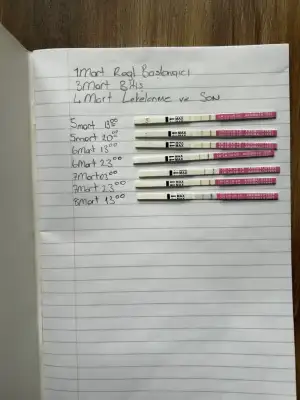 1 Mart Regl Başlangıcı
3 Mart Bitiş
4 Mart Lekelenme ve Son
5 mart 13⁰⁰
5 mart 20⁰⁰
6 Mart 13⁰⁰
6 Mart 23⁰⁰
7 Mart 13⁰⁰
7 mart 23⁰⁰
8 Mart 13⁰⁰